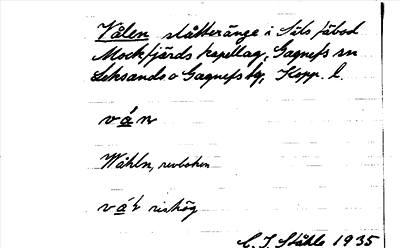 Vålen slåtteränge i Sils fäbod
Mockfjärds kapellag, Gagnefs sn
Leksands o Gagnefs tg, Kopp. l.
vá̱n
Wåhln, revboken
vá̱ɫ rishög
C. J. Ståhle 1935